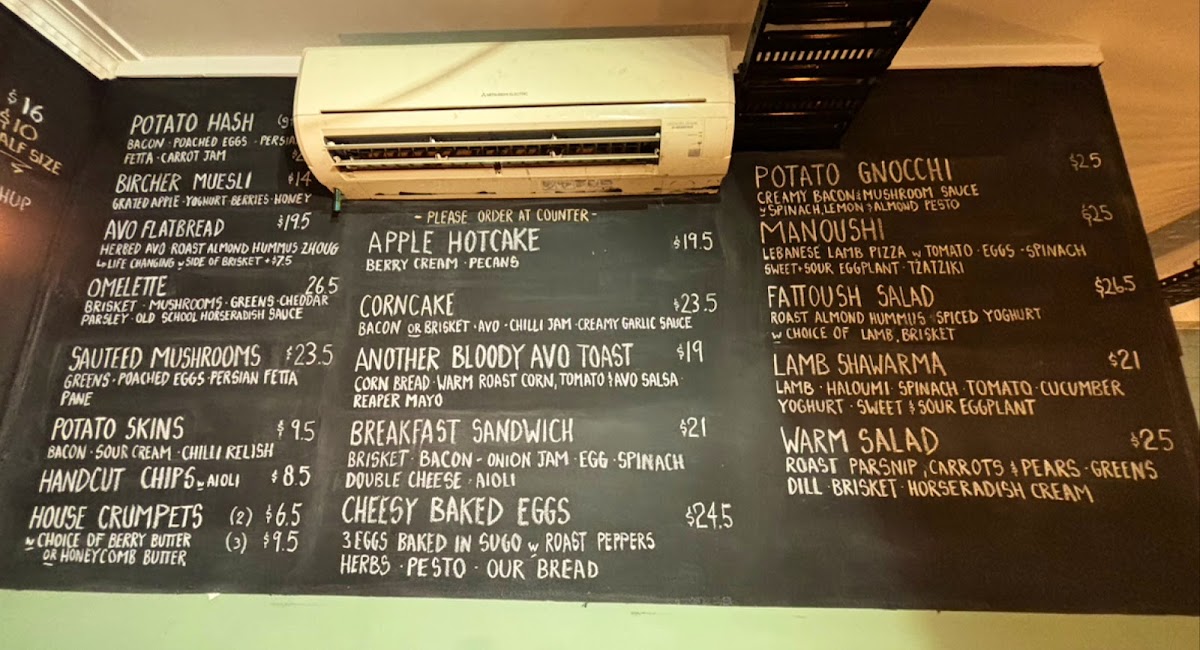 $16
$10
HALF SIZE
POTATO HASH
BACON · POACHED EGGS · PERSIAN
FETTA · CARROT JAM
BIRCHER MUESLI $14
GRATED APPLE · YOGHURT · BERRIES · HONEY
AVO FLATBREAD $19.5
HERBED AVO ROAST ALMOND HUMMUS ZHOUG
LIFE CHANGING w SIDE OF BRISKET + $7.5
OMELETTE 26.5
BRISKET · MUSHROOMS · GREENS · CHEDDAR
PARSLEY · OLD SCHOOL HORSERADISH SAUCE
SAUTEED MUSHROOMS $23.5
GREENS · POACHED EGGS · PERSIAN FETTA
PANE
POTATO SKINS $9.5
BACON · SOUR CREAM · CHILLI RELISH
HANDCUT CHIPS w AIOLI $8.5
HOUSE CRUMPETS (2) $6.5
w CHOICE OF BERRY BUTTER (3) $9.5
OR HONEYCOMB BUTTER
MITSUBISHI ELECTRIC
- PLEASE ORDER AT COUNTER -
APPLE HOTCAKE $19.5
BERRY CREAM · PECANS
CORNCAKE $23.5
BACON OR BRISKET · AVO · CHILLI JAM · CREAMY GARLIC SAUCE
ANOTHER BLOODY AVO TOAST $19
CORN BREAD · WARM ROAST CORN, TOMATO & AVO SALSA ·
REAPER MAYO
BREAKFAST SANDWICH $21
BRISKET · BACON - ONION JAM · EGG · SPINACH
DOUBLE CHEESE · AIOLI
CHEESY BAKED EGGS $24.5
3 EGGS BAKED IN SUGO w ROAST PEPPERS
HERBS · PESTO · OUR BREAD
POTATO GNOCCHI $25
CREAMY BACON & MUSHROOM SAUCE
w SPINACH, LEMON & ALMOND PESTO
MANOUSHI $25
LEBANESE LAMB PIZZA w TOMATO · EGGS · SPINACH
SWEET + SOUR EGGPLANT · TZATZIKI
FATTOUSH SALAD $26.5
ROAST ALMOND HUMMUS SPICED YOGHURT
w CHOICE OF LAMB, BRISKET
LAMB SHAWARMA $21
LAMB · HALOUMI · SPINACH · TOMATO · CUCUMBER
YOGHURT · SWEET & SOUR EGGPLANT
WARM SALAD $25
ROAST PARSNIP, CARROTS & PEARS · GREENS
DILL · BRISKET · HORSERADISH CREAM